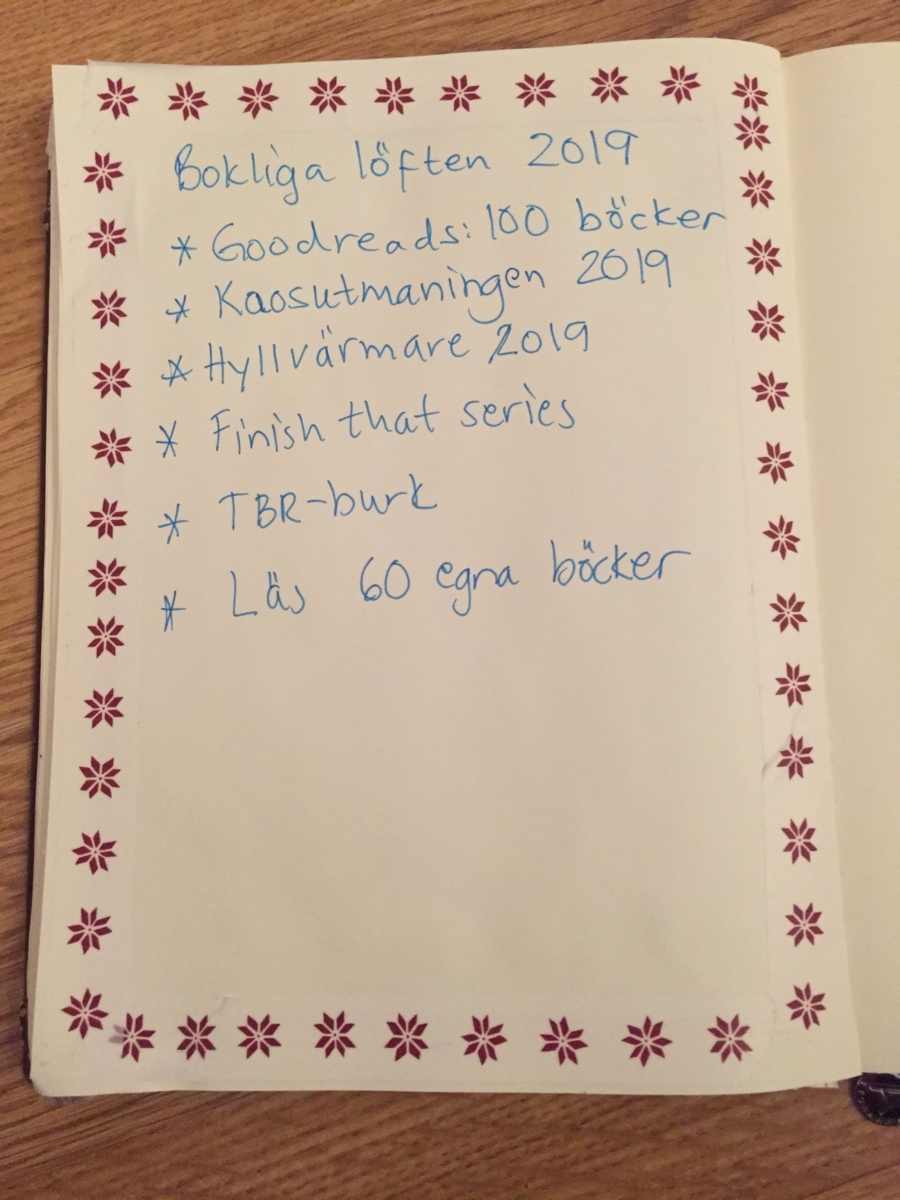 Bokliga löften 2019
* Goodreads: 100 böcker
* Kaosutmaningen 2019
* Hyllvärmare 2019
* Finish that series
* TBR-burk
* Läs 60 egna böcker